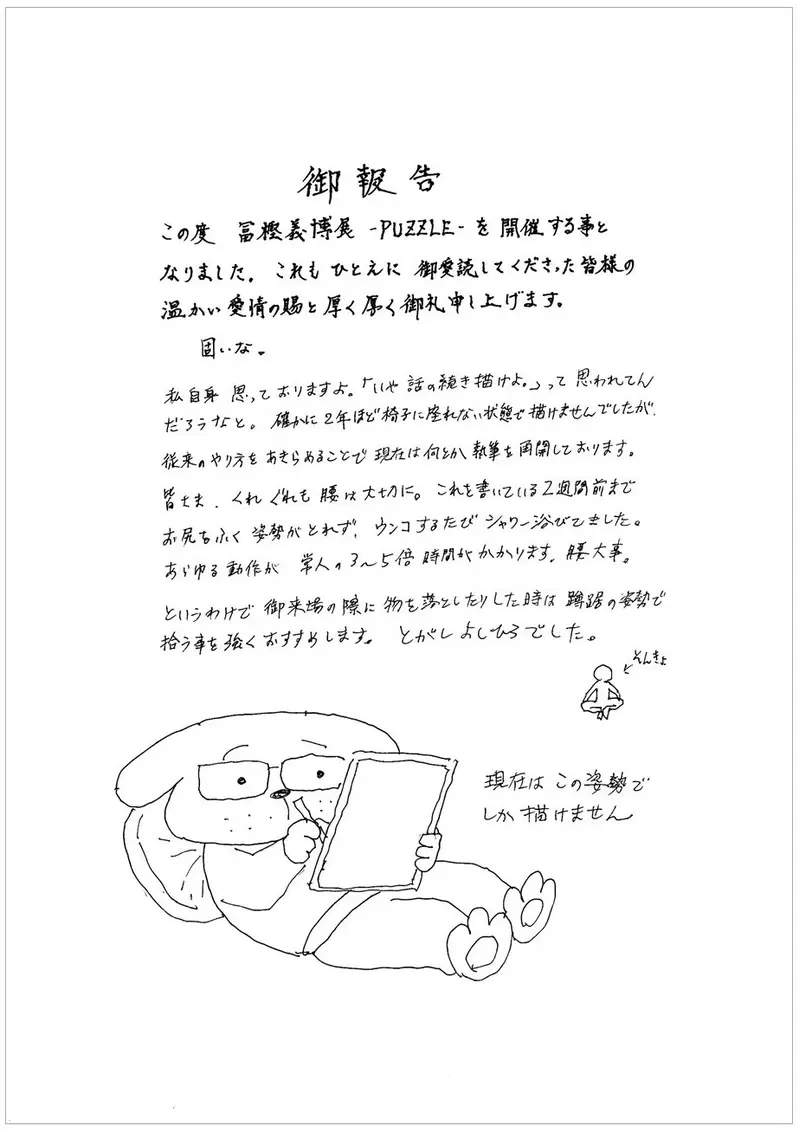 御報告
この度 冨樫義博展 -PUZZLE- を開催する事と
なりました。これもひとえに 御愛読してくださった皆様の
温かい愛情の賜と厚く厚く御礼申し上げます。
固いな。
私自身 思っておりますよ。「いや 話の続き描けよ。」って 思われてん
だろうなと。確かに2年ほど椅子に座れない状態で描けませんでしたが、
従来のやり方をあきらめることで現在は何とか執筆を再開しております。
皆さま、くれぐれも腰は大切に。これを書いている2週間前まで
お尻をふく姿勢がとれず、ウンコするたびシャワー浴びてきました。
あらゆる動作が 常人の3〜5倍時間がかかります。腰大事。
というわけで 御来場の際に物を落としたりした時は 蹲踞の姿勢で
拾う事を強くおすすめします。 とがしよしひろでした。
そんきょ
現在はこの姿勢で
しか描けません